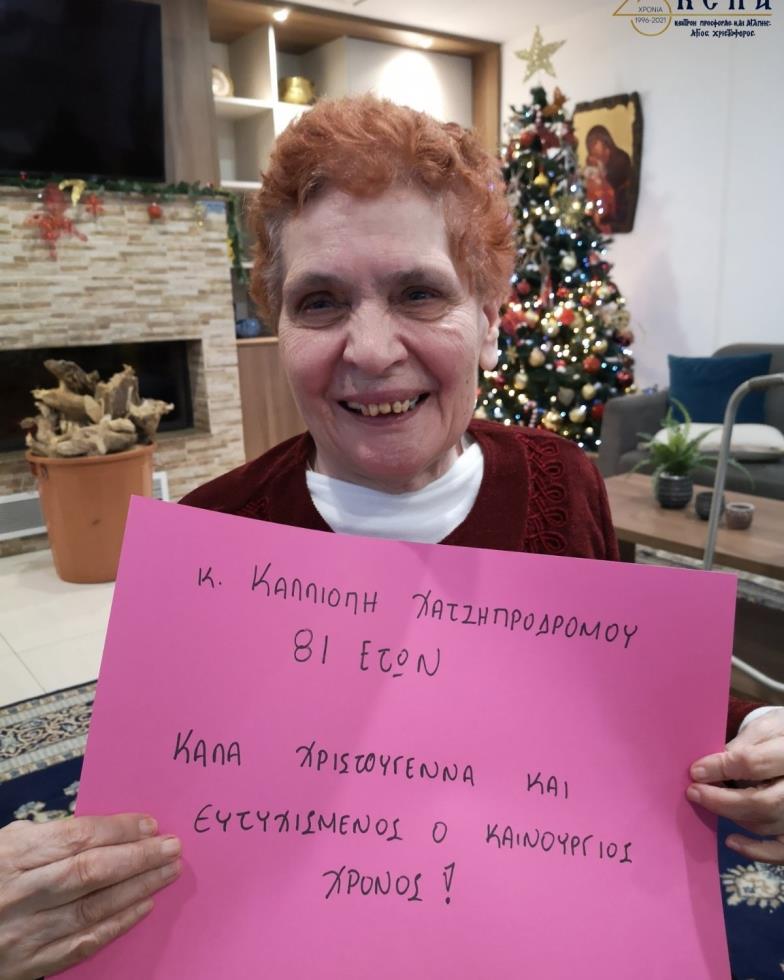 ΧΡΟΝΙΑ
1996-2021
ΚΕΠΑ
ΚΕΝΤΡΟΝ ΠΡΟΣΦΟΡΑΣ ΚΑΙ ΑΓΑΠΗΣ
ΑΓΙΟΣ ΧΡΙΣΤΟΦΟΡΟΣ
Κ. ΚΑΛΛΙΟΠΗ ΧΑΤΖΗΠΡΟΔΡΟΜΟΥ
81 ΕΤΩΝ
ΚΑΛΑ ΧΡΙΣΤΟΥΓΕΝΝΑ ΚΑΙ
ΕΥΤΥΧΙΣΜΕΝΟΣ Ο ΚΑΙΝΟΥΡΓΙΟΣ
ΧΡΟΝΟΣ!